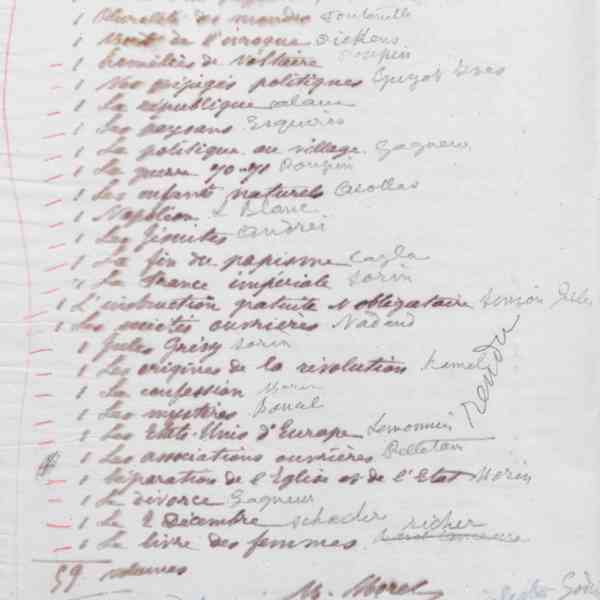 1 Pluralité des mondes Fontenelle
1 de l'europe Dickens
1 homélies de Voltaire Poupin
1 Nos préjugés politiques Guyot Yves
1 La république
1 Les paysans Esquiros
1 La politique au village Gagneur
1 La guerre 70-71 Poupin
1 Les enfants naturels Acollas
1 Napoléon L Blanc
1 Les Jésuites Andrei
1 La fin du papisme Cayla
1 La France impériale Sorin
1 L'instruction gratuite & obligatoire Simon Jules
1 Les sociétés ouvrières Nadaud
1 Jules Grévy Sorin
1 Les origines de la révolution hamel
1 La confession Morin
1 Les mystères
rendu
1 Les Etats-Unis d'Europe Lemonnier
1 Les associations ouvrières Pelletan
1 Séparation de l'Eglise et de l'Etat Morin
1 Le divorce Gagneur
1 Le 2 Décembre Schoelcher
1 Le livre des femmes richer
59 volumes
M. Morel